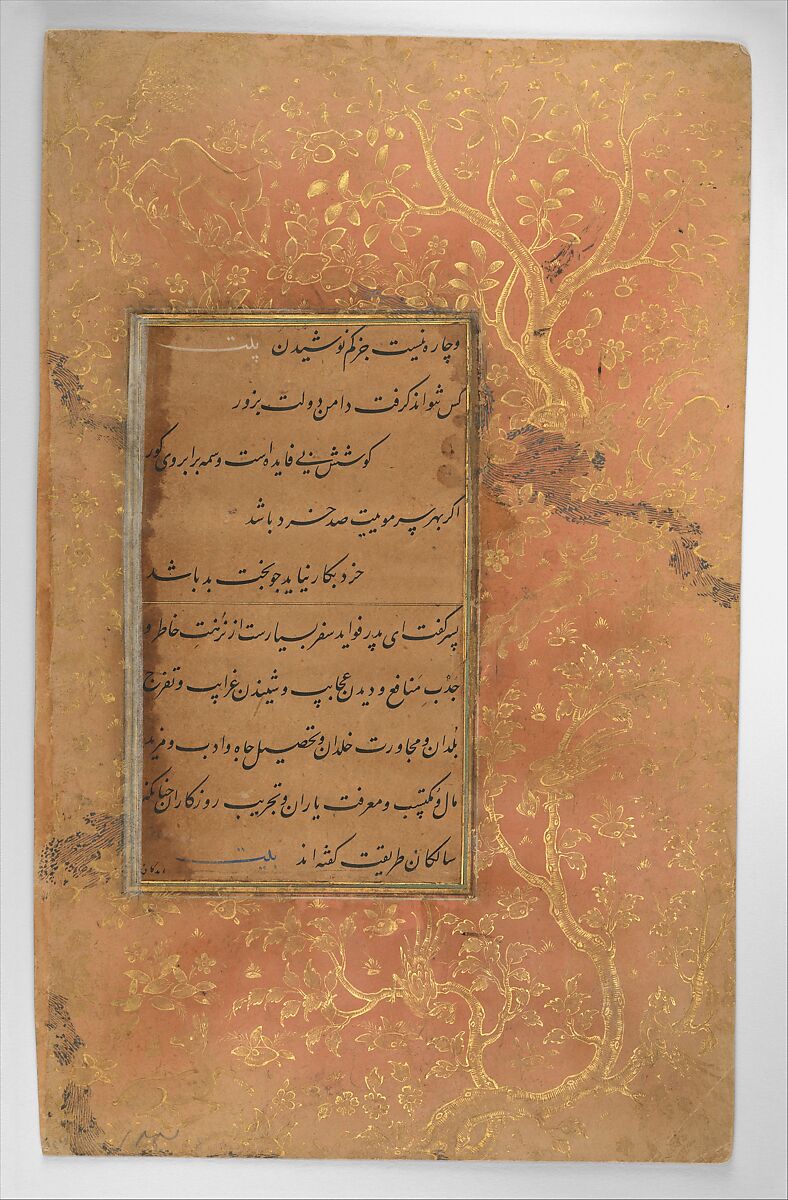 و چاره نیست جز کم نوشیدن بیت
کس نتواند کرفت دامن دولت بزور
کوشش بی فایده است وسمه بر ابروی کور
اکر بهر سر مویت صد خرد باشد
خرد بکار نیاید جو بخت بد باشد
پسر کفت ای پدر فواید سفر بسیارست از نزهت خاطر و
جذب منافع و دیدن عجایب و شنیدن غرایب و تفرج
بلدان و مجاورت خلدان و تحصیل جاه و ادب و مزید
مال و مکتسب و معرفت یاران و تجربت روزکاران چنانکه
سالکان طریقت کفته اند بیت